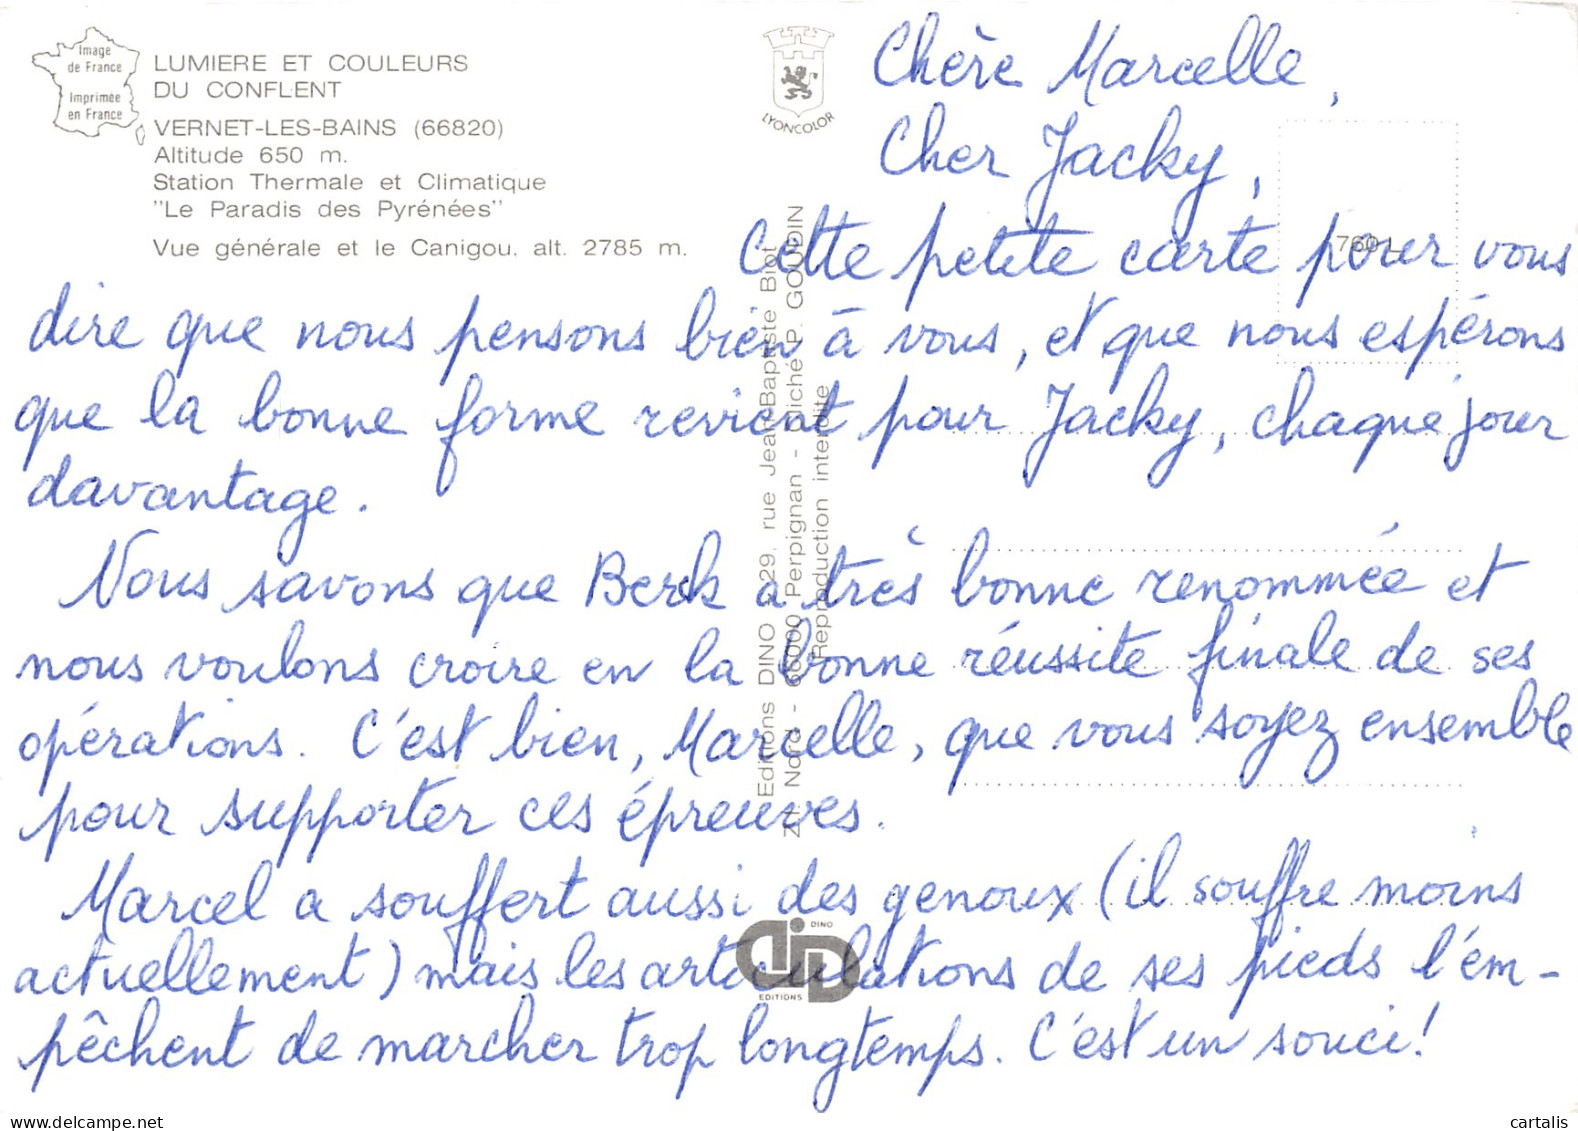 Image
de France
Imprimée
en France
LUMIERE ET COULEURS
DU CONFLENT
VERNET-LES-BAINS (66820)
Altitude 650 m.
Station Thermale et Climatique
"Le Paradis des Pyrénées"
Vue générale et le Canigou. alt. 2785 m.
LYONCOLOR
Editions DINO - 29, rue Jean-Baptiste Biot
ZI Nord - 66000 Perpignan - Cliché P. GOUDIN
Reproduction interdite
760 L
Chère Marcelle,
Cher Jacky,
Cette petite carte pour vous
dire que nous pensons bien à vous, et que nous espérons
que la bonne forme revient pour Jacky, chaque jour
davantage.
Nous savons que Berck a très bonne renommée et
nous voulons croire en la bonne réussite finale de ses
opérations. C'est bien, Marcelle, que vous soyez ensemble
pour supporter ces épreuves.
Marcel a souffert aussi des genoux (il souffre moins
actuellement) mais les articulations de ses pieds l'em-
pêchent de marcher trop longtemps. C'est un souci!
DINO
EDITIONS
cartalis